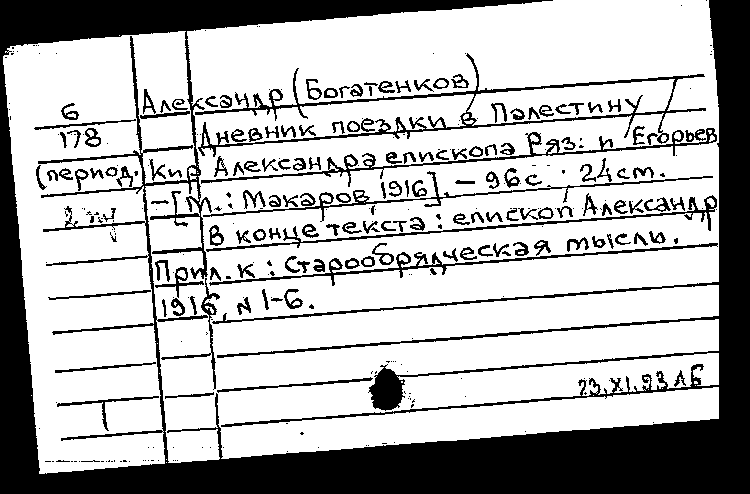 Александр (Богатенков)
6
178
(период.)
Дневник поездки в Палестину /
Кир Александра, епископа Ряз: и Егорьев/
— [М.: Макаров, 1916]. — 96с.; 24см.
В конце текста: епископ Александр
Прил. к: Старообрядческая мысль.
1916, N 1-6.
23.XI.93 ЛБ